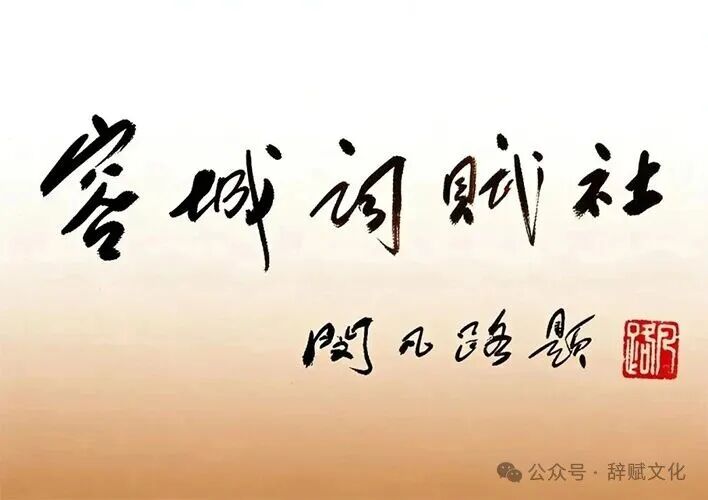 容城词赋社
闵凡路题
公众号·辞赋文化